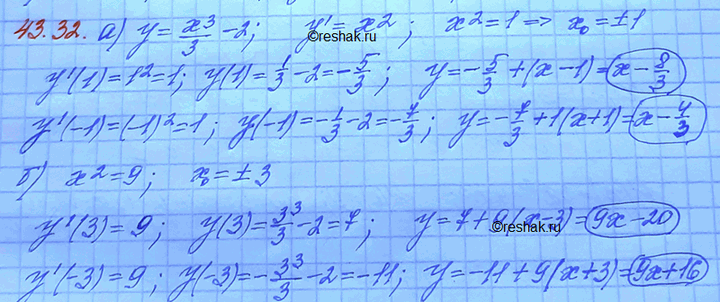 43.32. а) y = x³/3 - 2; y' = x²; x² = 1 => x₀ = ±1
© reshak.ru
y'(1) = 1² = 1; y(1) = 1/3 - 2 = -5/3; y = -5/3 + (x - 1) = x - 8/3
y'(-1) = (-1)² = 1; y(-1) = -1/3 - 2 = -7/3; y = -7/3 + 1(x + 1) = x - 4/3
б) x² = 9; x₀ = ±3
y'(3) = 9; y(3) = 3³/3 - 2 = 7; y = 7 + 9(x - 3) = 9x - 20
© reshak.ru
y'(-3) = 9; y(-3) = -3³/3 - 2 = -11; y = -11 + 9(x + 3) = 9x + 16